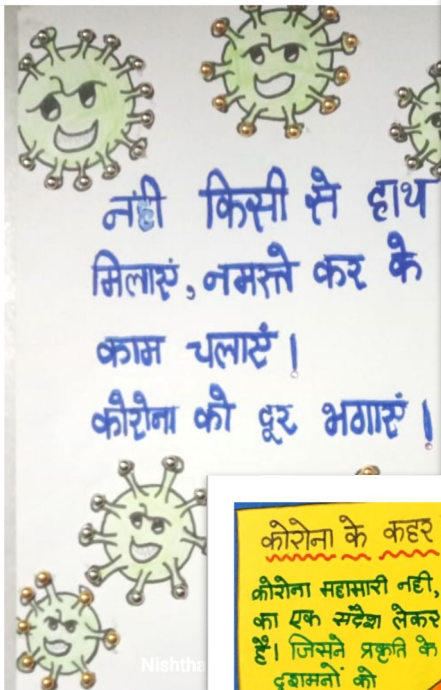 नही किसी से हाथ
मिलाएं, नमस्ते कर के
काम चलाएं।
कोरोना को दूर भगाएं।
Nishtha
कोरोना के कहर
कोरोना महामारी नही,
का एक संदेश लेकर
हैं। जिसने प्रकृति के
दुशमनों को